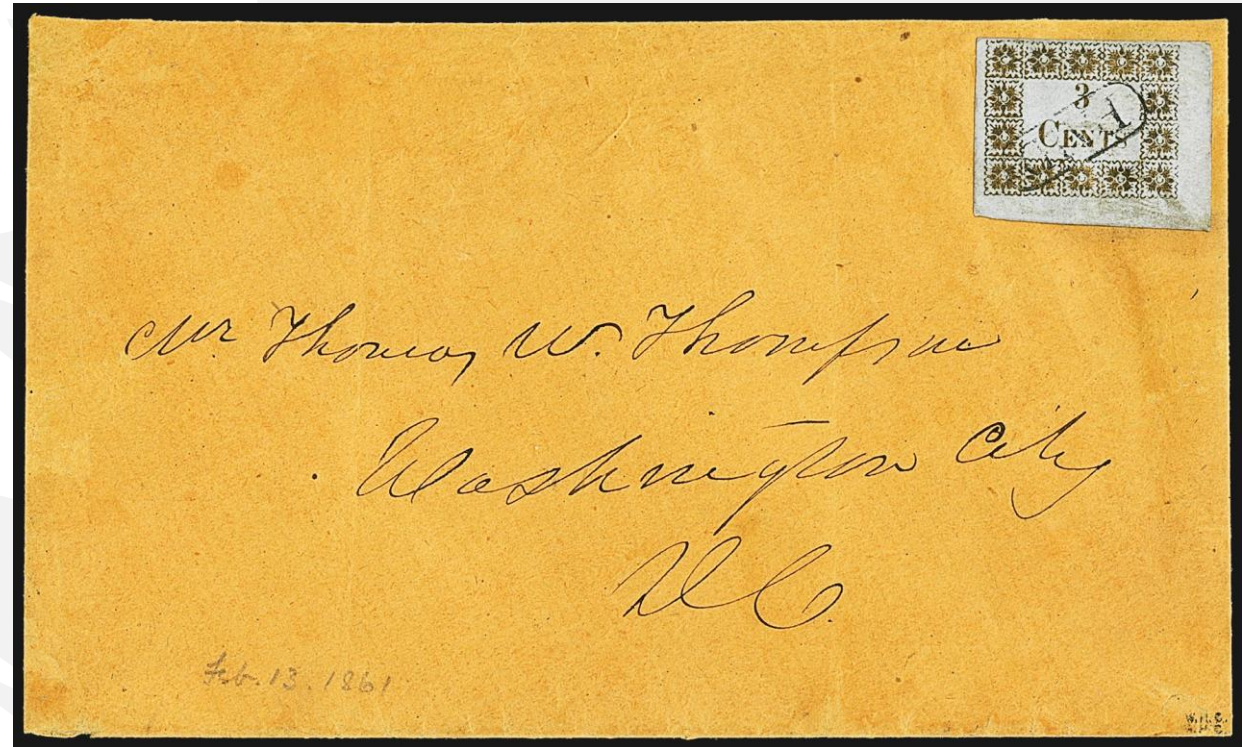 3
CENTS
Mr Thomas W. Thompson
Washington City
D C.
Feb. 13. 1861
W.H.C.